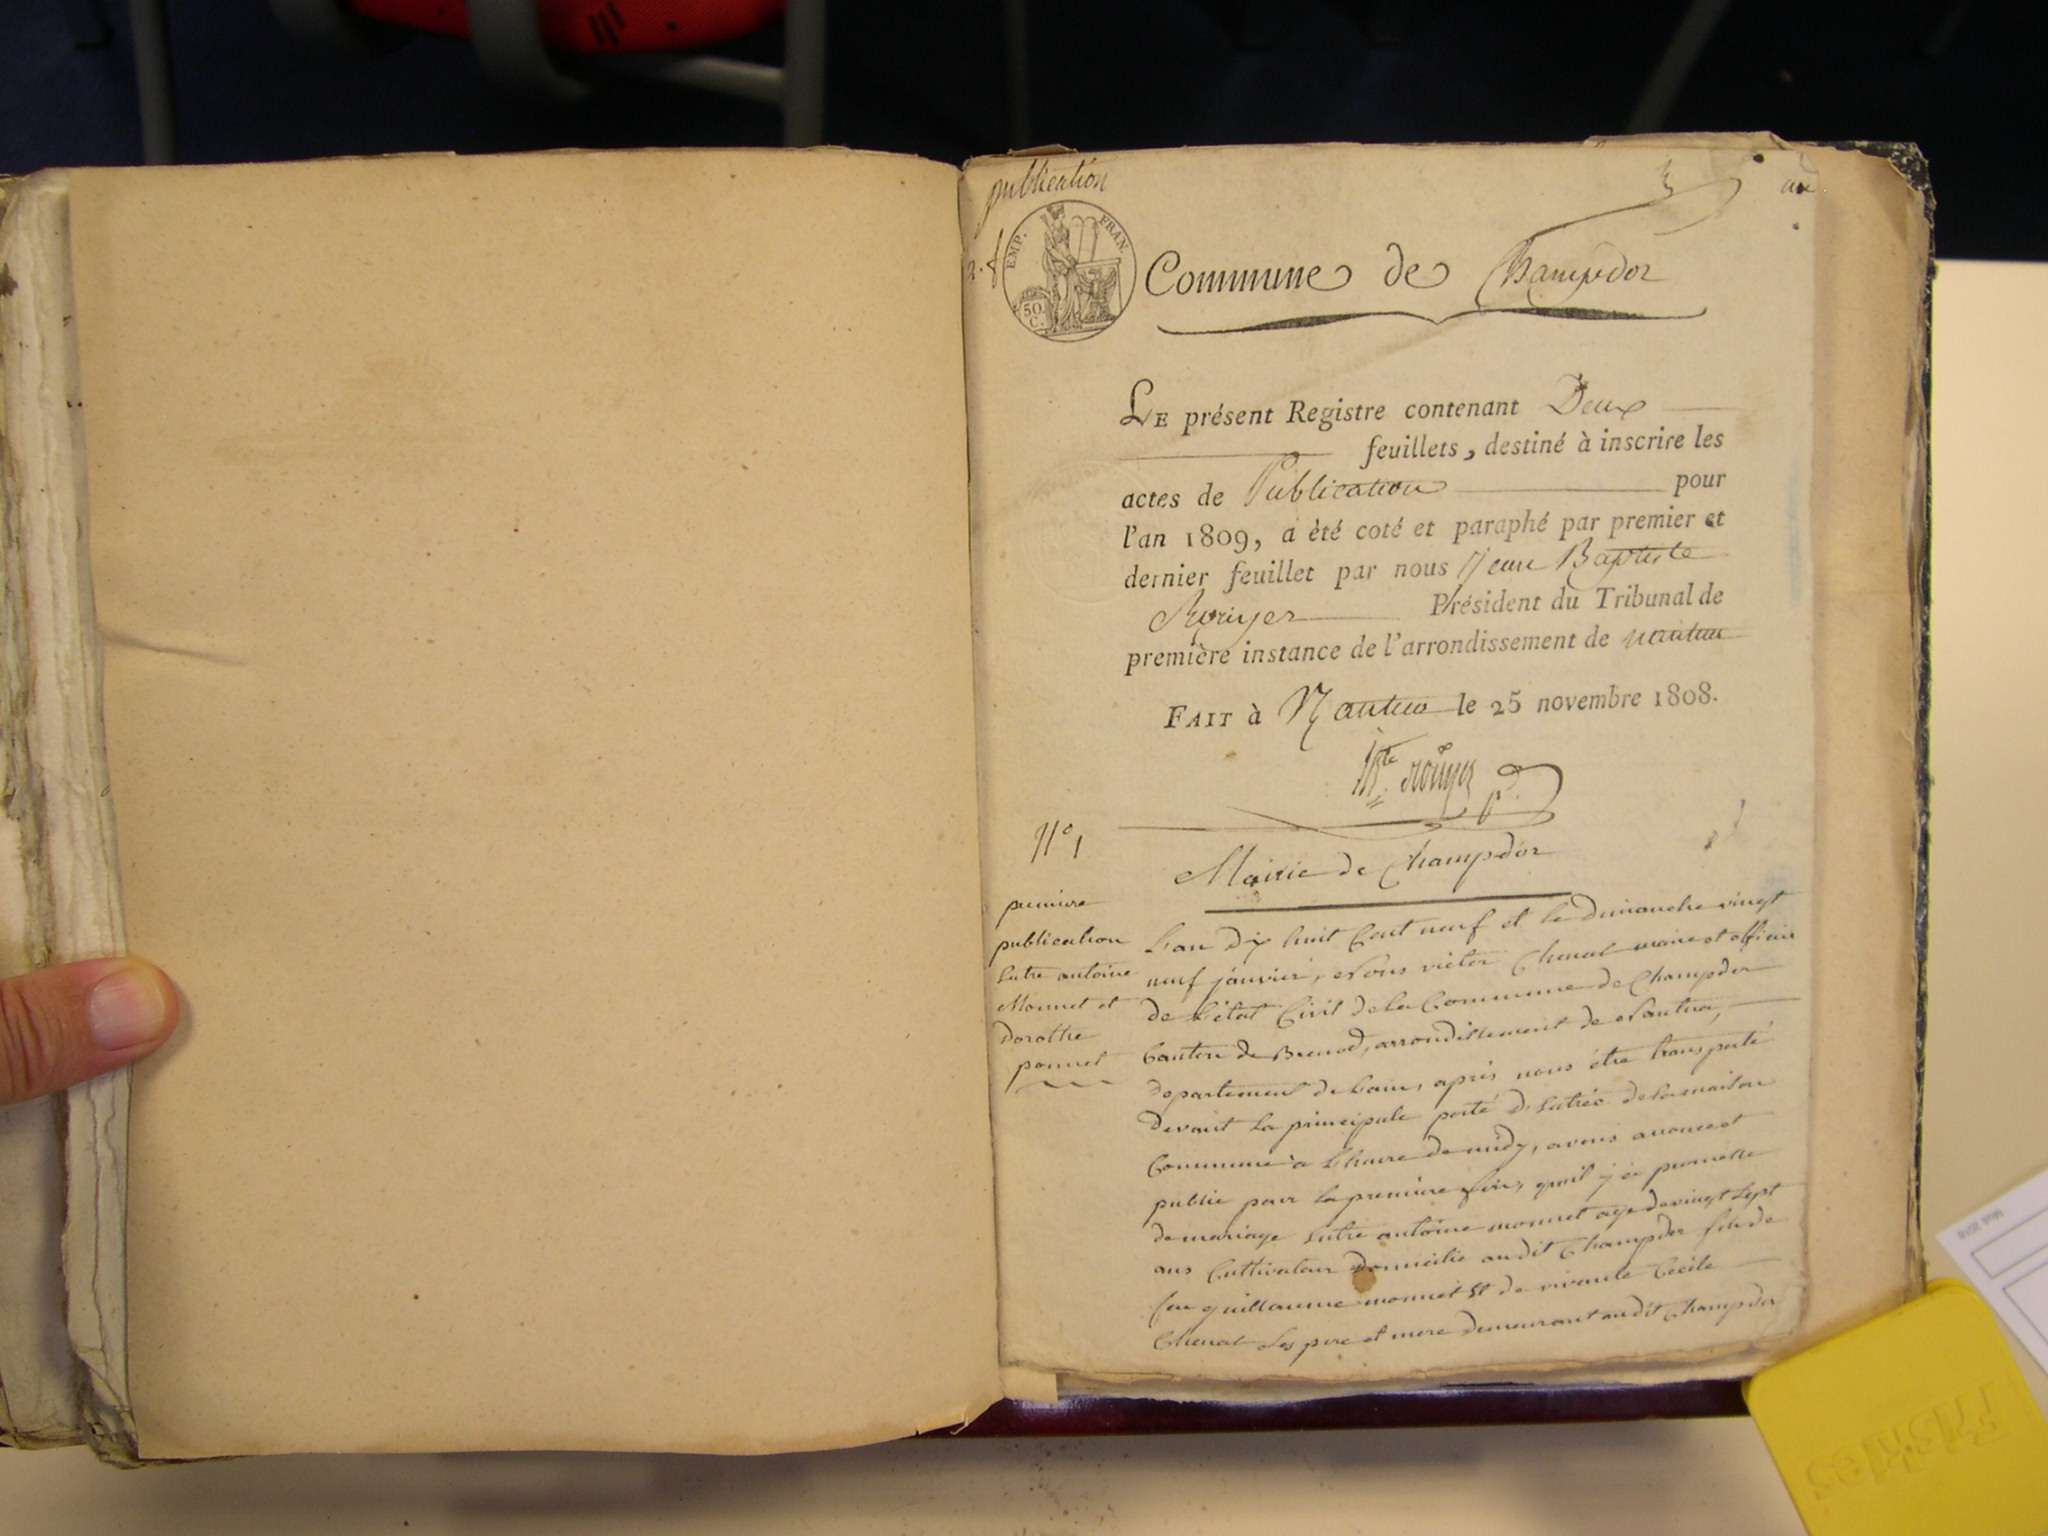 publication
2. f
EMP. FRAN.
50
C.
Commune de Champdor
LE présent Registre contenant Deux
feuillets, destiné à inscrire les
actes de Publication pour
l'an 1809, a été coté et paraphé par premier et
dernier feuillet par nous Jean Baptiste
Rouyer Président du Tribunal de
première instance de l'arrondissement de nantua
FAIT à Nantua le 25 novembre 1808.
JBte rouyer
N° 1
Mairie de Champdor
premiere
publication
Entre antoine
Monnet et
Dorothe
ponnet
L'an dix huit Cent neuf et le dimanche vingt
neuf janvier, Nous victor Chenat maire et officier
de L'état Civil de la Commune de Champdor
Canton de Brenod, arrondissement de Nantua,
departement de Lain, après nous être transporté
devant La principale porté d'Entrée de la maison
Commune à L'heure de midy, avons anoncé et
publie pour la premiere fois, quil y a promesse
de mariage Entre antoine monnet age de vingt Sept
ans Cultivateur Domicilie audit Champdor fils de
feu guillaume monnet et de vivante Cecile
Chenat Ses pere et mere demeurant audit Champdor
Fiskles